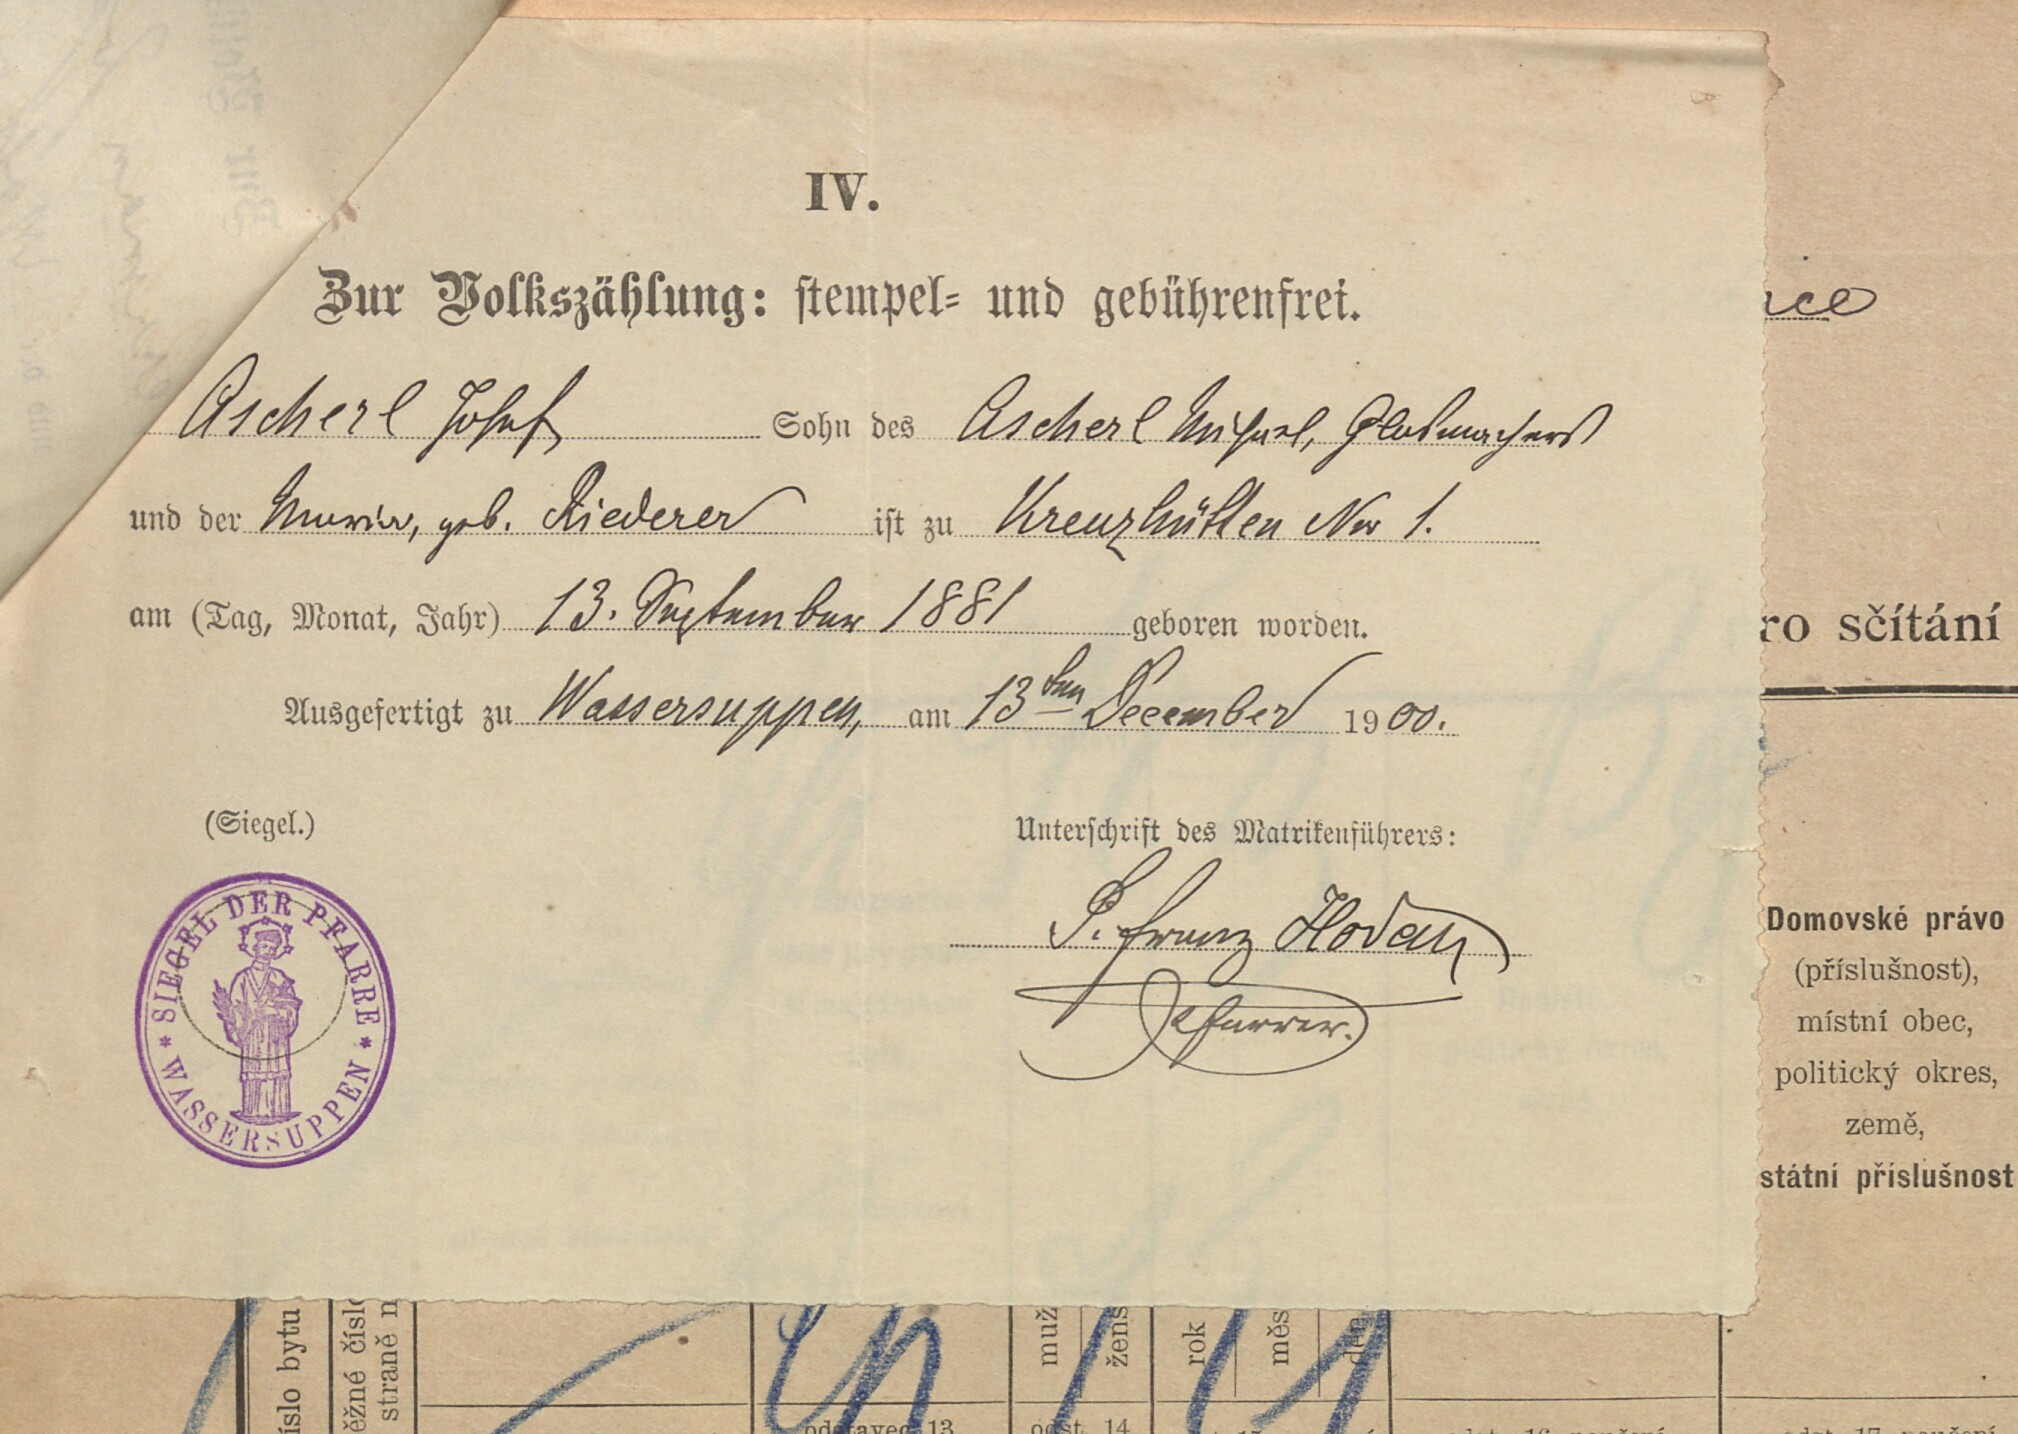 IV.
Zur Volkszählung: stempel- und gebührenfrei.
Ascherl Josef Sohn des Ascherl Michael, Glasmachers
und der Maria, geb. Riederer ist zu Kreuzhütten Nro 1.
am (Tag, Monat, Jahr) 13. September 1881 geboren worden.
Ausgefertigt zu Wassersuppen, am 13ten December 1900.
(Siegel.)
Unterschrift des Matrikenführers:
P. Franz Hodan
Pfarrer.
SIEGEL DER PFARRE
* WASSERSUPPEN *
ice
ro sčítání
Domovské právo
(příslušnost),
místní obec,
politický okres,
země,
státní příslušnost
íslo bytu
ěžné číslo
straně
muž
žens
rok
měs
den
odstavec 13
odst. 14
odst. 16 poučení
odst. 17 poučení